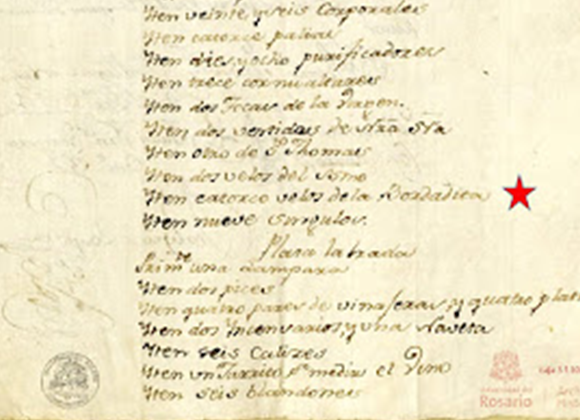 Yten veinte y seis Corporales
Yten catorce palias
Yten dies y ocho purificadores
Yten trece cornualtares
Yten dos Tocas de la Virgen.
Yten dos vestidos de Ntra Sra
Yten otro de Sto Thomas
Yten dos velos del Ssmo
Yten catorce velos de la
Yten nueve Singulos.
Plata labrada
Primte una Lampara
Yten dos pices
Yten quatro pares de vinageras, y quatro plat
Yten dos Incensarios y una Naveta
Yten seis Calizes
Yten un Jarrito pa medir el Vino
Yten seis blandones
Rosario